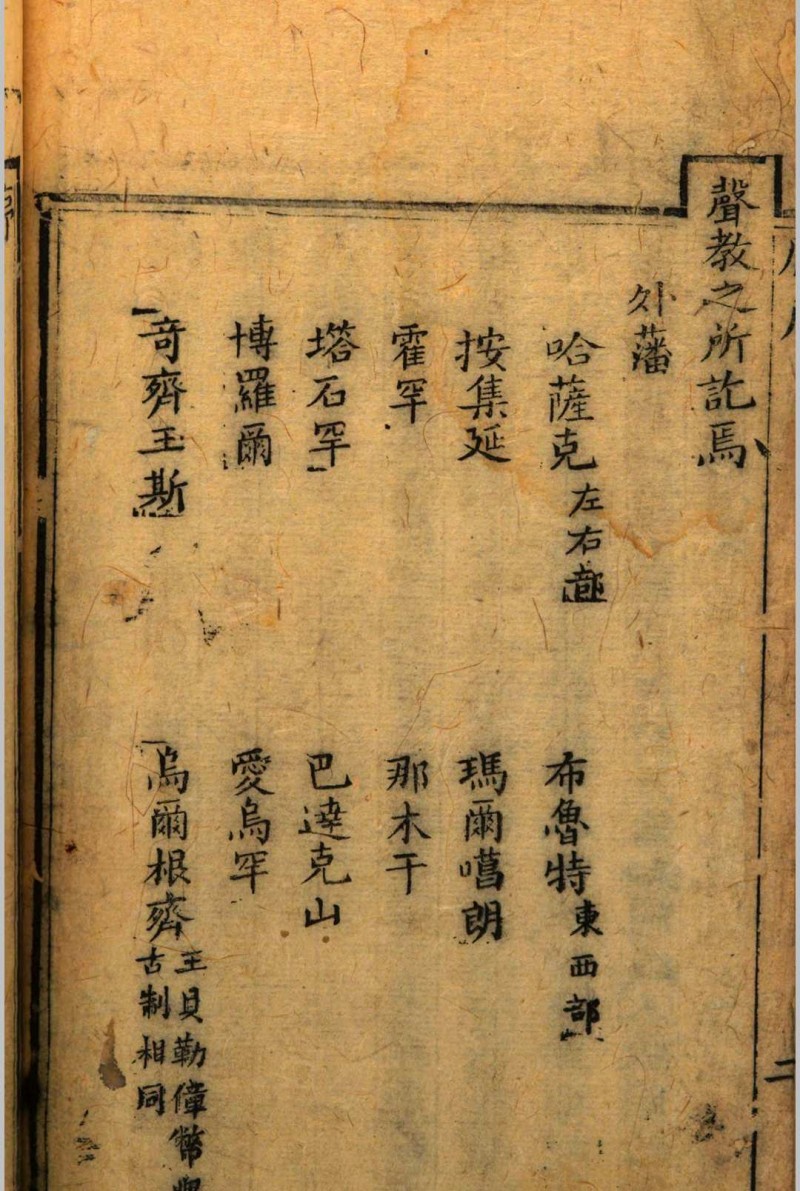 聲教之所訖焉
外藩
哈薩克左右部 布魯特東西部
按集延 瑪爾噶朗
霍罕 那木干
塔石罕 巴達克山
博羅爾 愛烏罕
奇齊玉斯 烏爾根齊王貝勒俸幣與
古制相同
二